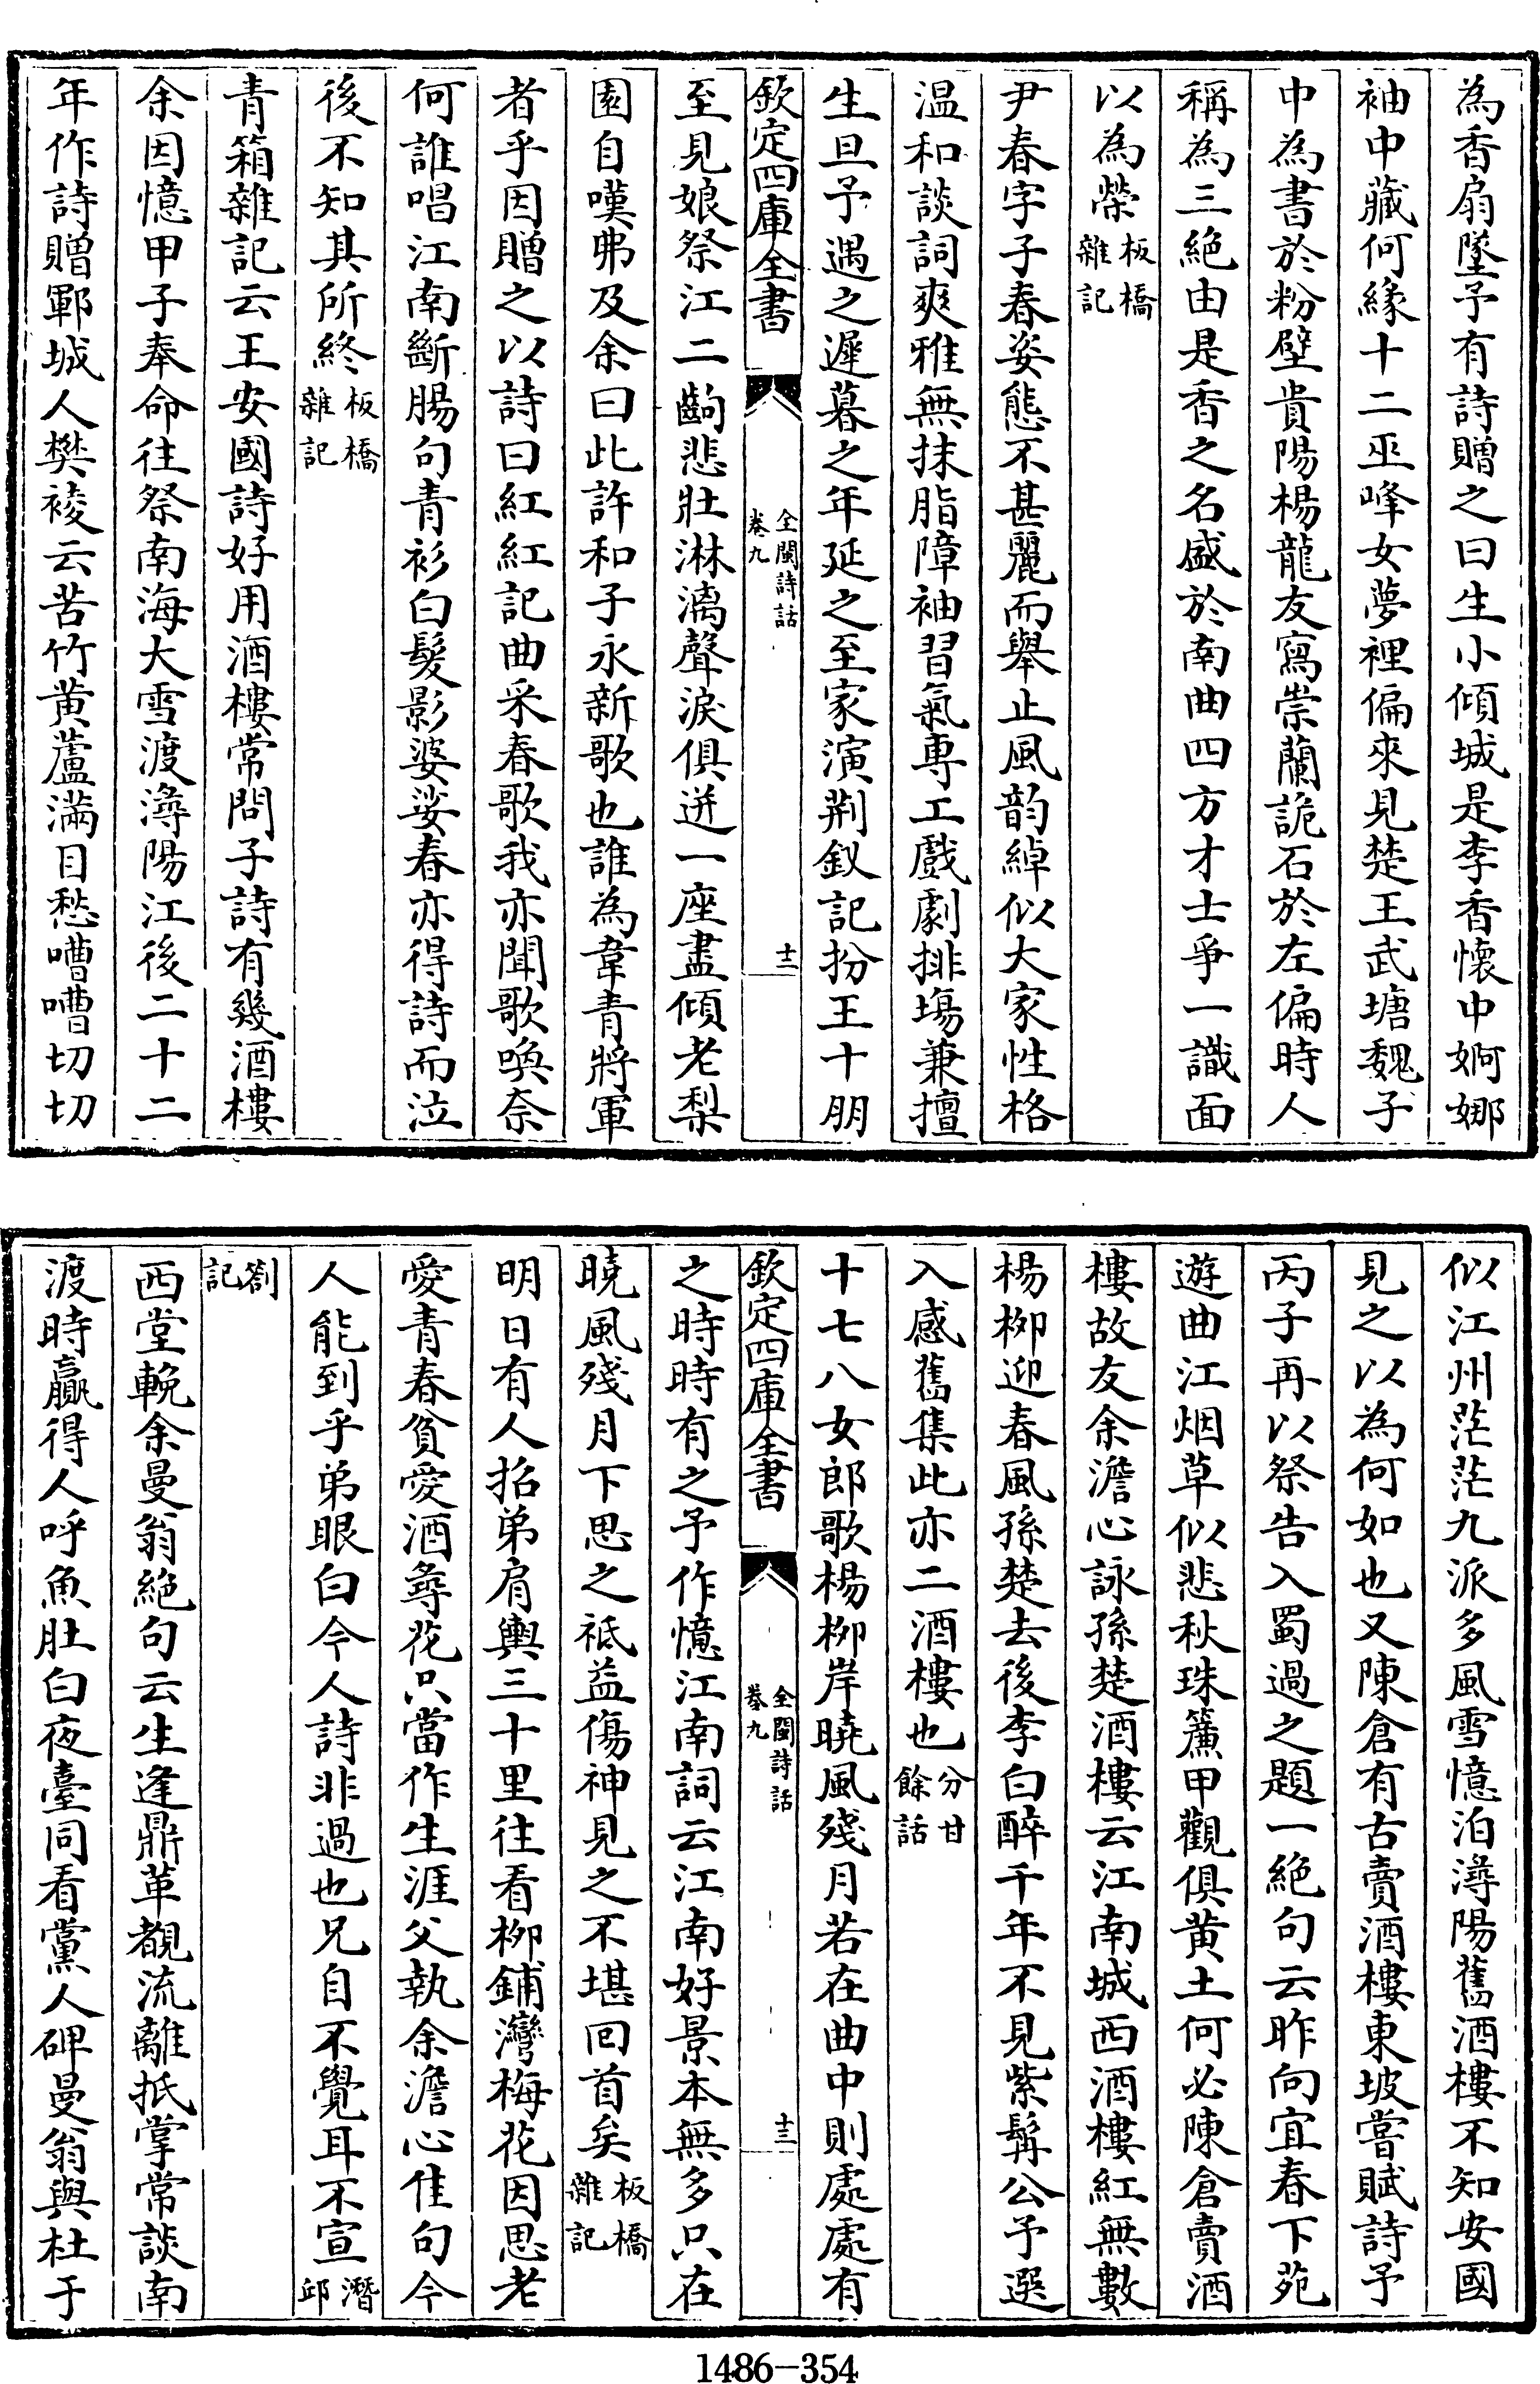 為香扇墜予有詩贈之曰生小傾城是李香懷中婀娜
袖中藏何緣十二巫峰女夢裡偏來見楚王武塘魏子
中為書於粉壁貴陽楊龍友寫崇蘭詭石於左偏時人
稱為三絕由是香之名盛於南曲四方才士爭一識面
以為榮板橋雜記
尹春字子春姿態不甚麗而舉止風韵綽似大家性格
温和談詞爽雅無抹脂障袖習氣専工戲劇排塲兼擅
生旦予遇之遲暮之年延之至家演荆釵記扮王十朋
欽定四庫全書
全閩詩話
卷九
十二
至見娘祭江二齣悲壯淋漓聲淚俱迸一座盡傾老梨
園自嘆弗及余曰此許和子永新歌也誰為韋青將軍
者乎因贈之以詩曰紅紅記曲采春歌我亦聞歌喚奈
何誰唱江南斷腸句青衫白髮影婆娑春亦得詩而泣
後不知其所終板橋雜記
青箱雜記云王安國詩好用酒樓常問子詩有幾酒樓
余因憶甲子奉命往祭南海大雪渡潯陽江後二十二
年作詩贈鄆城人樊祾云苦竹黄蘆滿目愁嘈嘈切切
似江州茫茫九派多風雪憶泊潯陽舊酒樓不知安國
見之以為何如也又陳倉有古賣酒樓東坡嘗賦詩予
丙子再以祭告入蜀過之題一絕句云昨向宜春下苑
遊曲江烟草似悲秋珠簾甲觀俱黄土何必陳倉賣酒
樓故友余澹心詠孫楚酒樓云江南城西酒樓紅無數
楊柳迎春風孫楚去後李白醉千年不見紫髯公予選
入感舊集此亦二酒樓也分甘餘話
十七八女郎歌楊柳岸曉風殘月若在曲中則處處有
欽定四庫全書
全閩詩話
卷九
十三
之時時有之予作憶江南詞云江南好景本無多只在
曉風殘月下思之祗益傷神見之不堪回首矣板橋雜記
明日有人招弟肩輿三十里往看柳鋪灣梅花因思老
愛青春貧愛酒尋花只當作生涯父執余澹心佳句今
人能到乎弟眼白今人詩非過也兄自不覺耳不宣潛邱
劄記
西堂輓余曼翁絕句云生逢鼎革覩流離抵掌常談南
渡時贏得人呼魚肚白夜臺同看黨人碑曼翁與杜于
1486-354